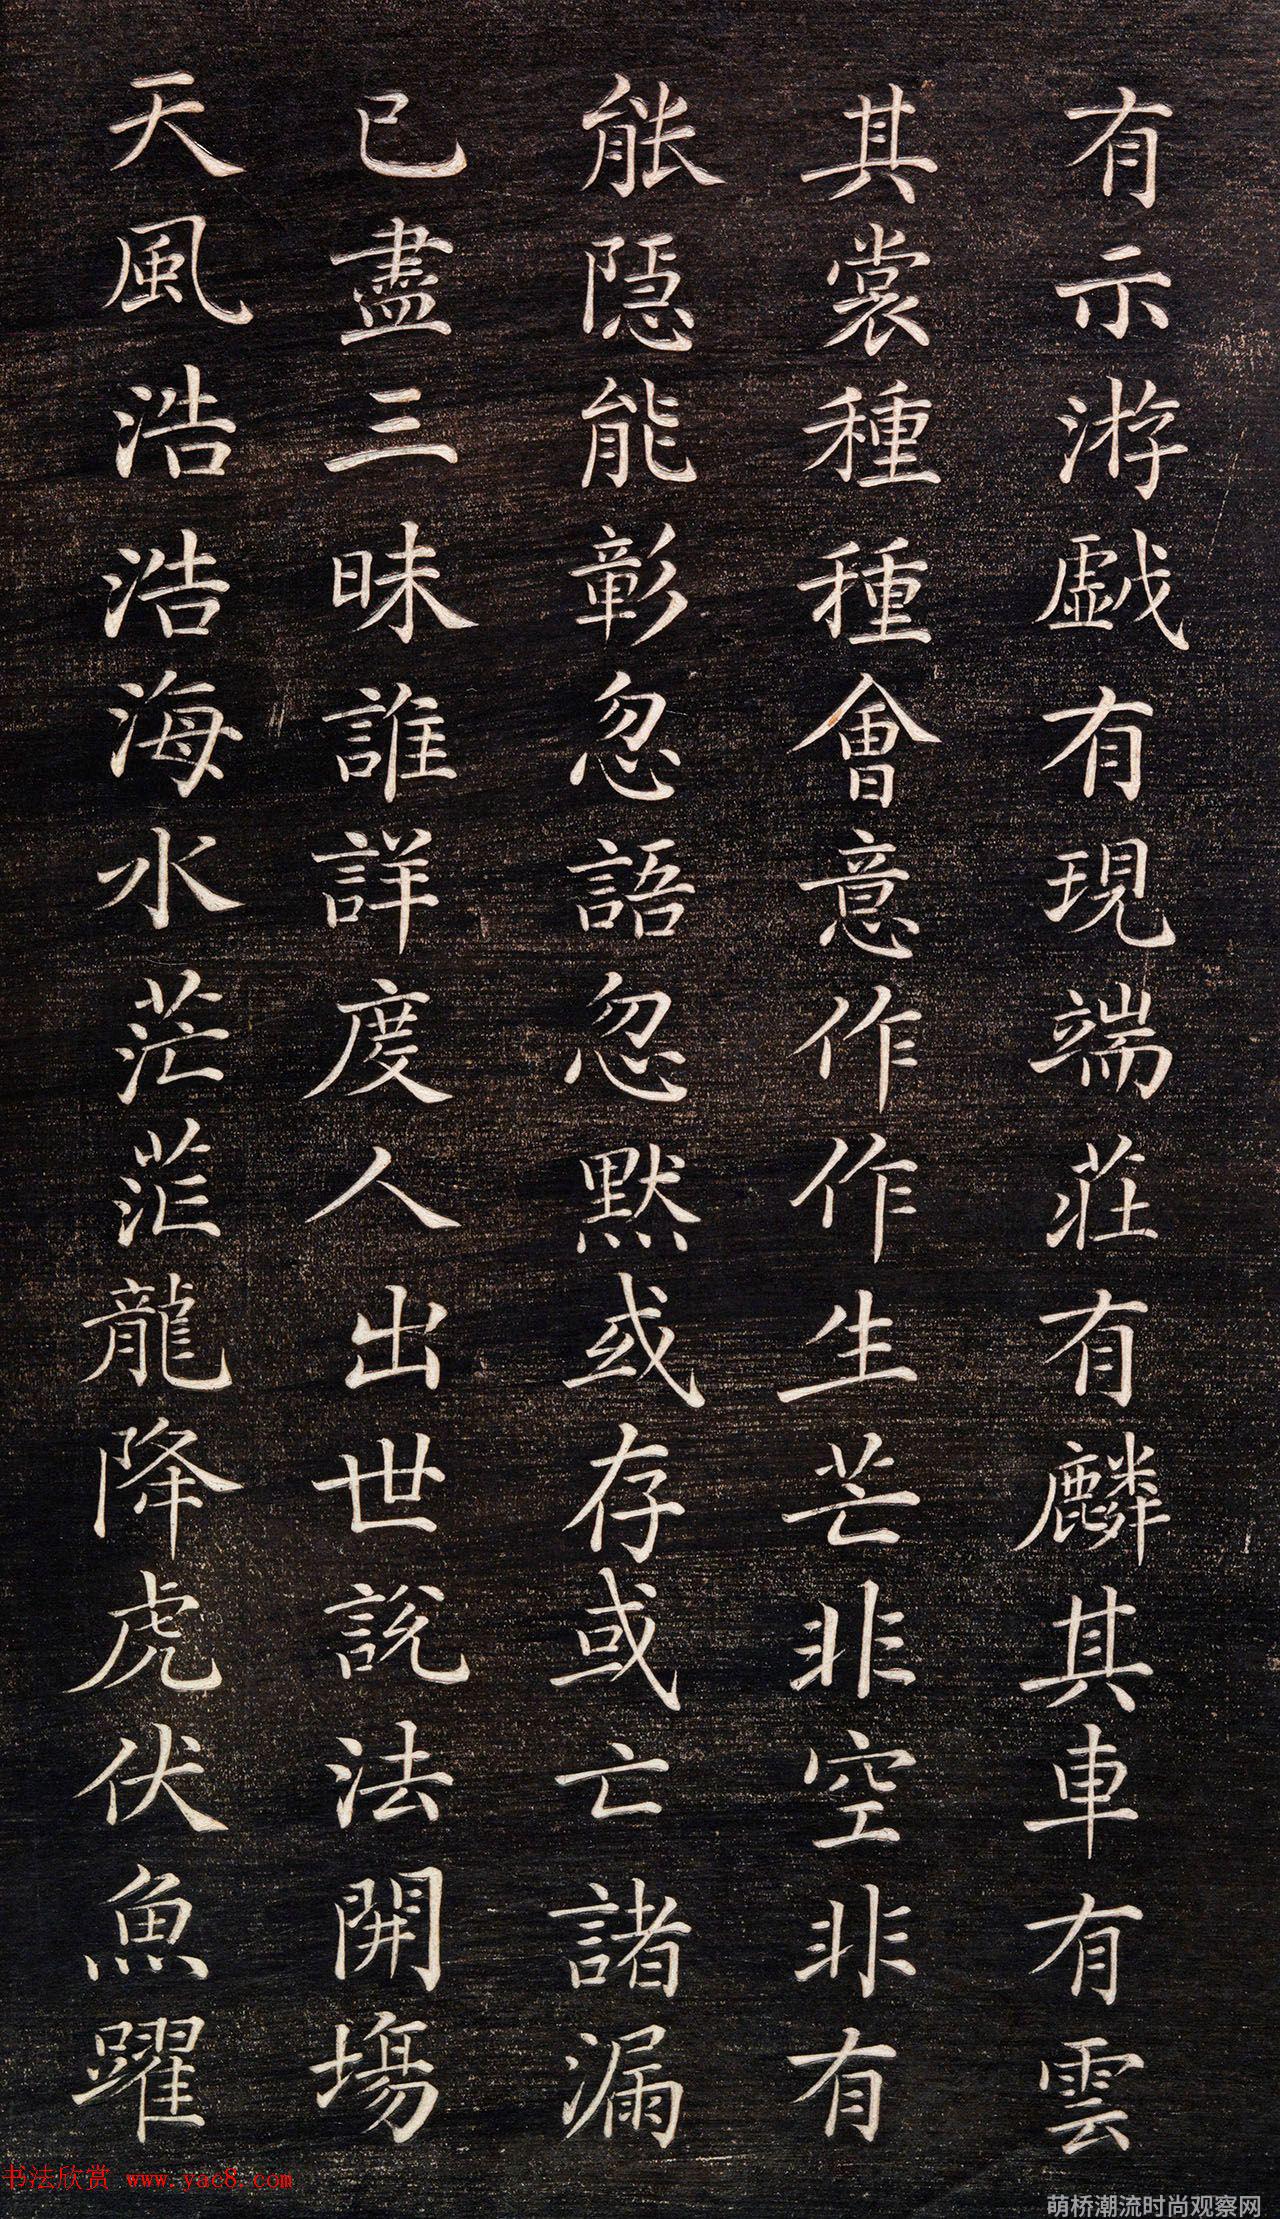 有示游戲有現端莊有麟其車有雲
其裳種種會意作作生芒非空非有
能隱能彰忽語忽默或存或亡諸漏
已盡三昧誰詳度人出世說法開場
天風浩浩海水茫茫龍降虎伏魚躍
书法欣赏 www.yac8.com
萌桥潮流时尚观察网